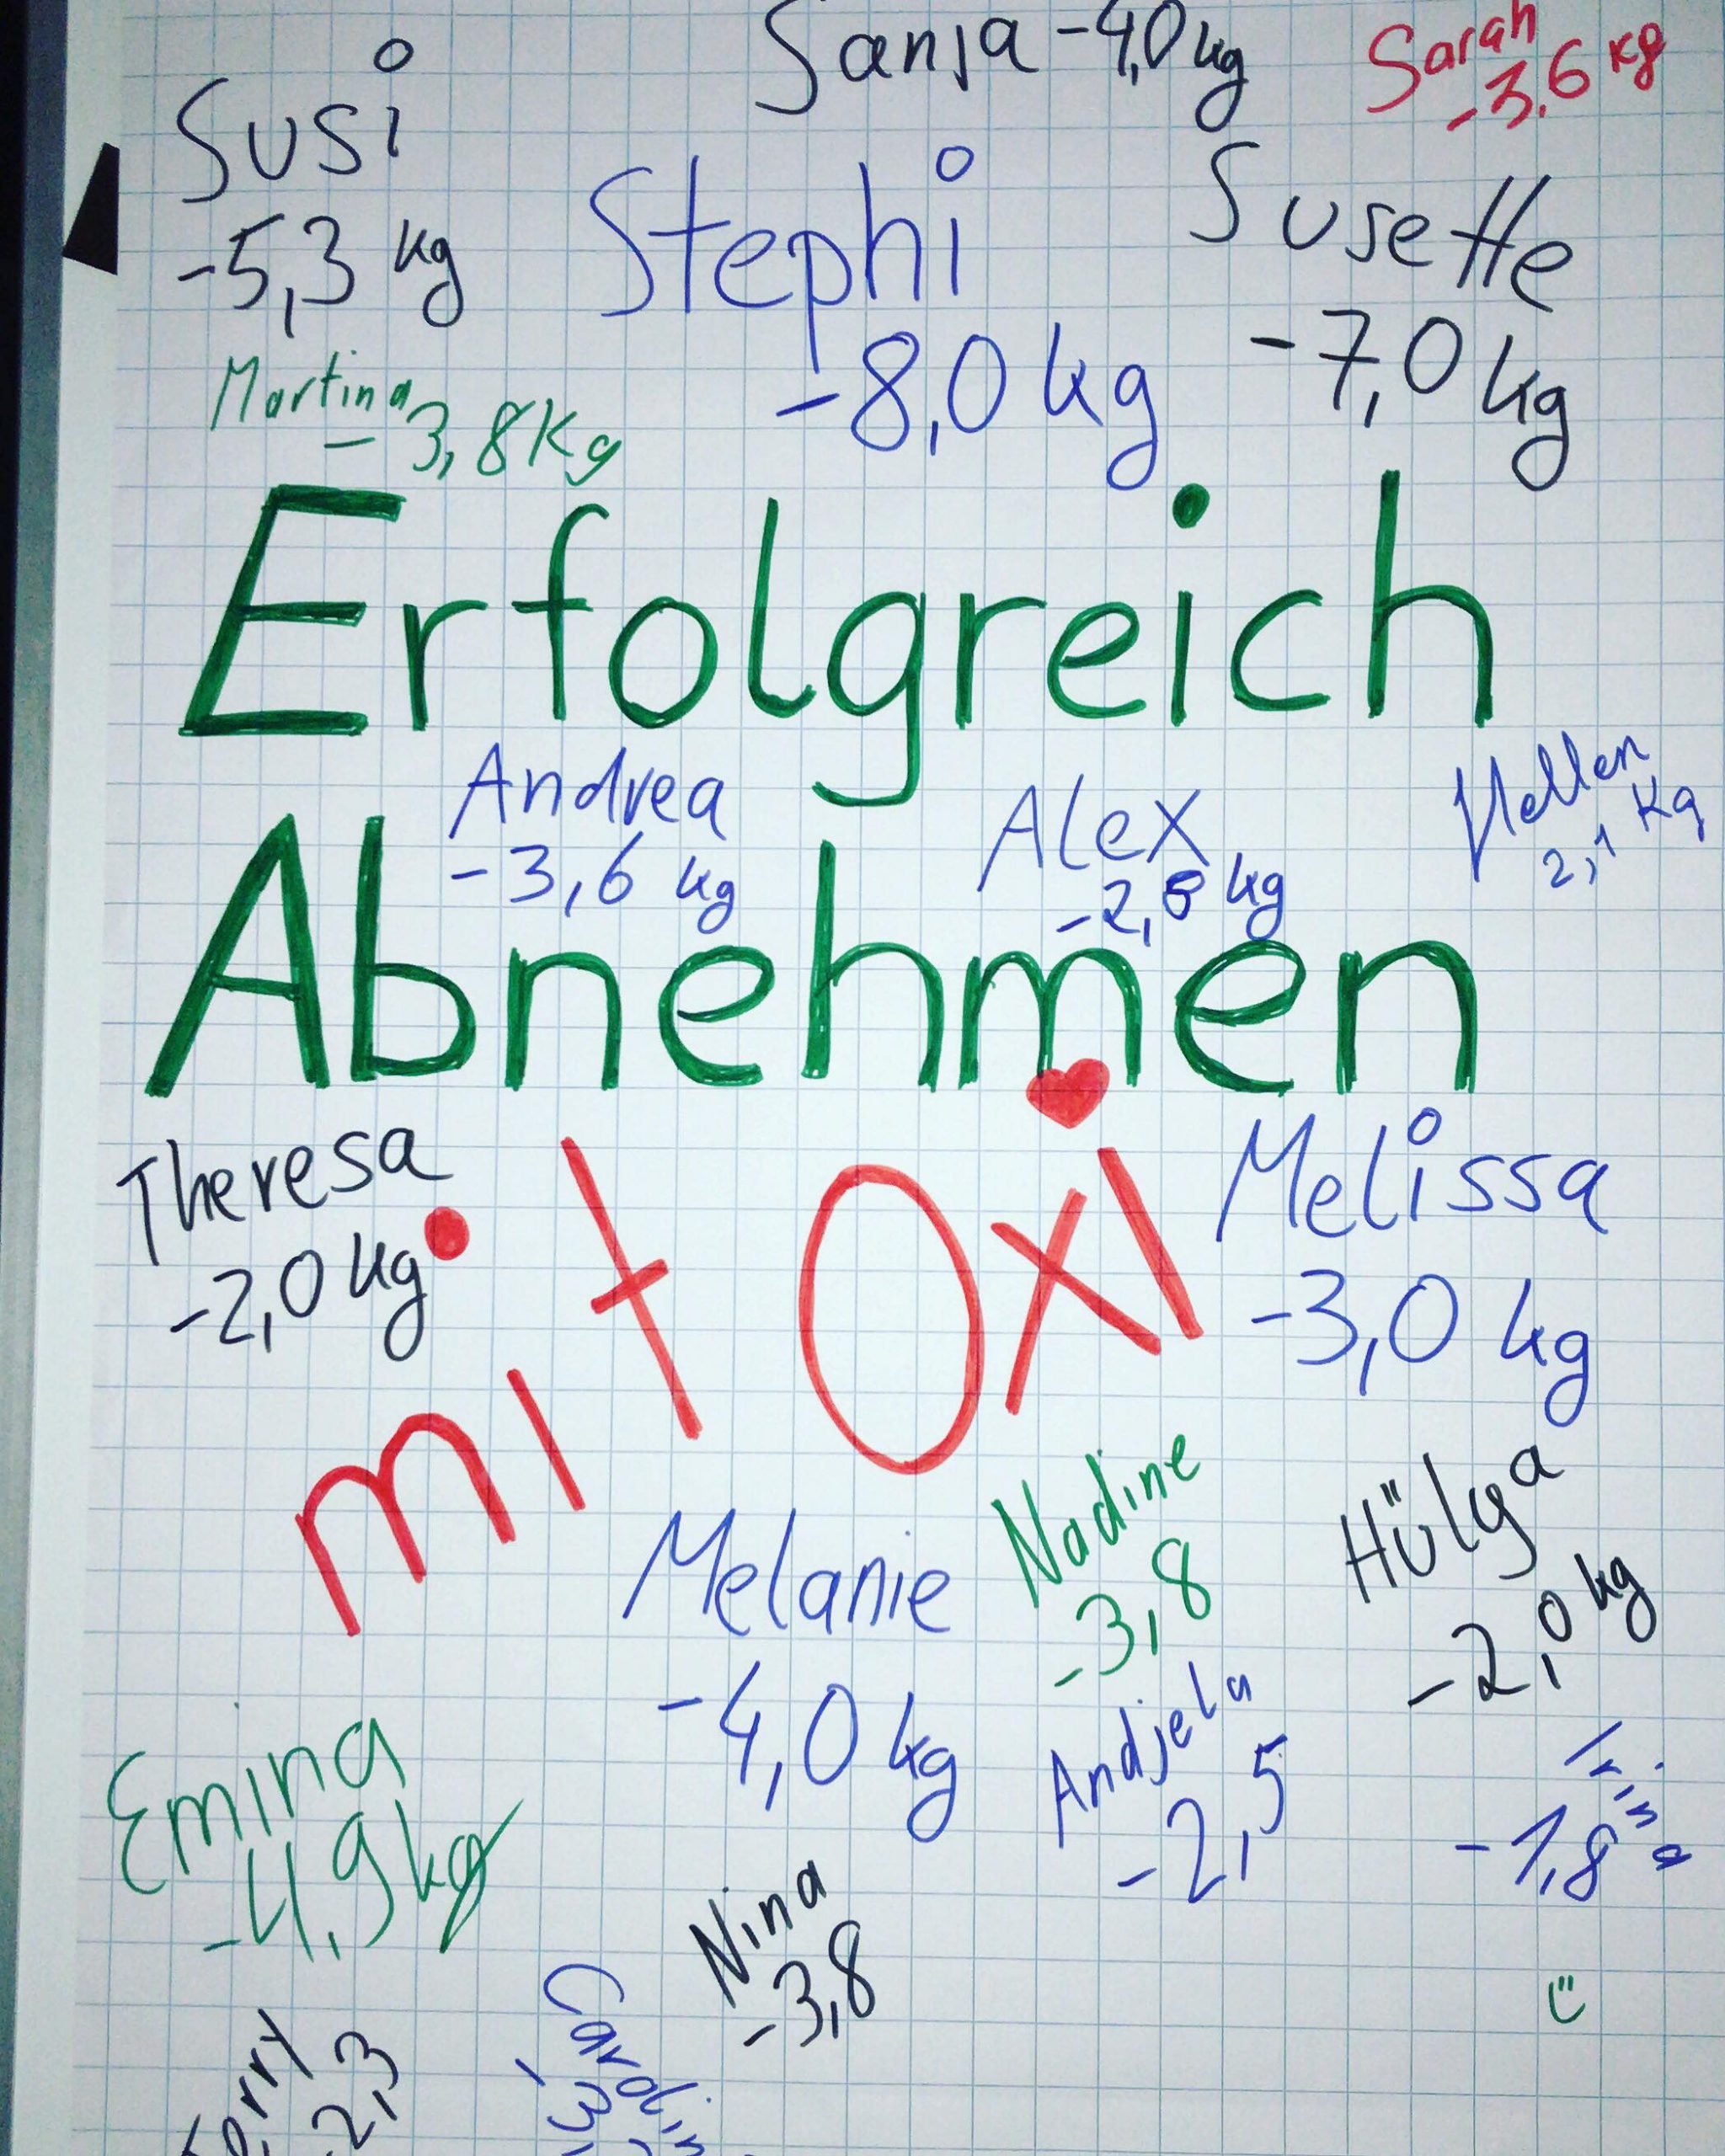 Sanja -4,0 kg
Sarah
-3,6 kg
Susi
-5,3 kg
Stephi
-8,0 kg
Susette
-7,0 kg
Martina
-3,8 Kg
Erfolgreich
Andrea
-3,6 kg
Alex
kg
Hellen
2,1 Kg
Abnehmen
Theresa
-2,0 kg
mit Oxi
Melissa
-3,0 kg
Melanie
-4,0 kg
Nadine
-3,8
Hülya
-2,0 kg
Emina
-4,9 kg
Andjela
-2,5
Irina
-1,8
Nina
-3,8
-2,3